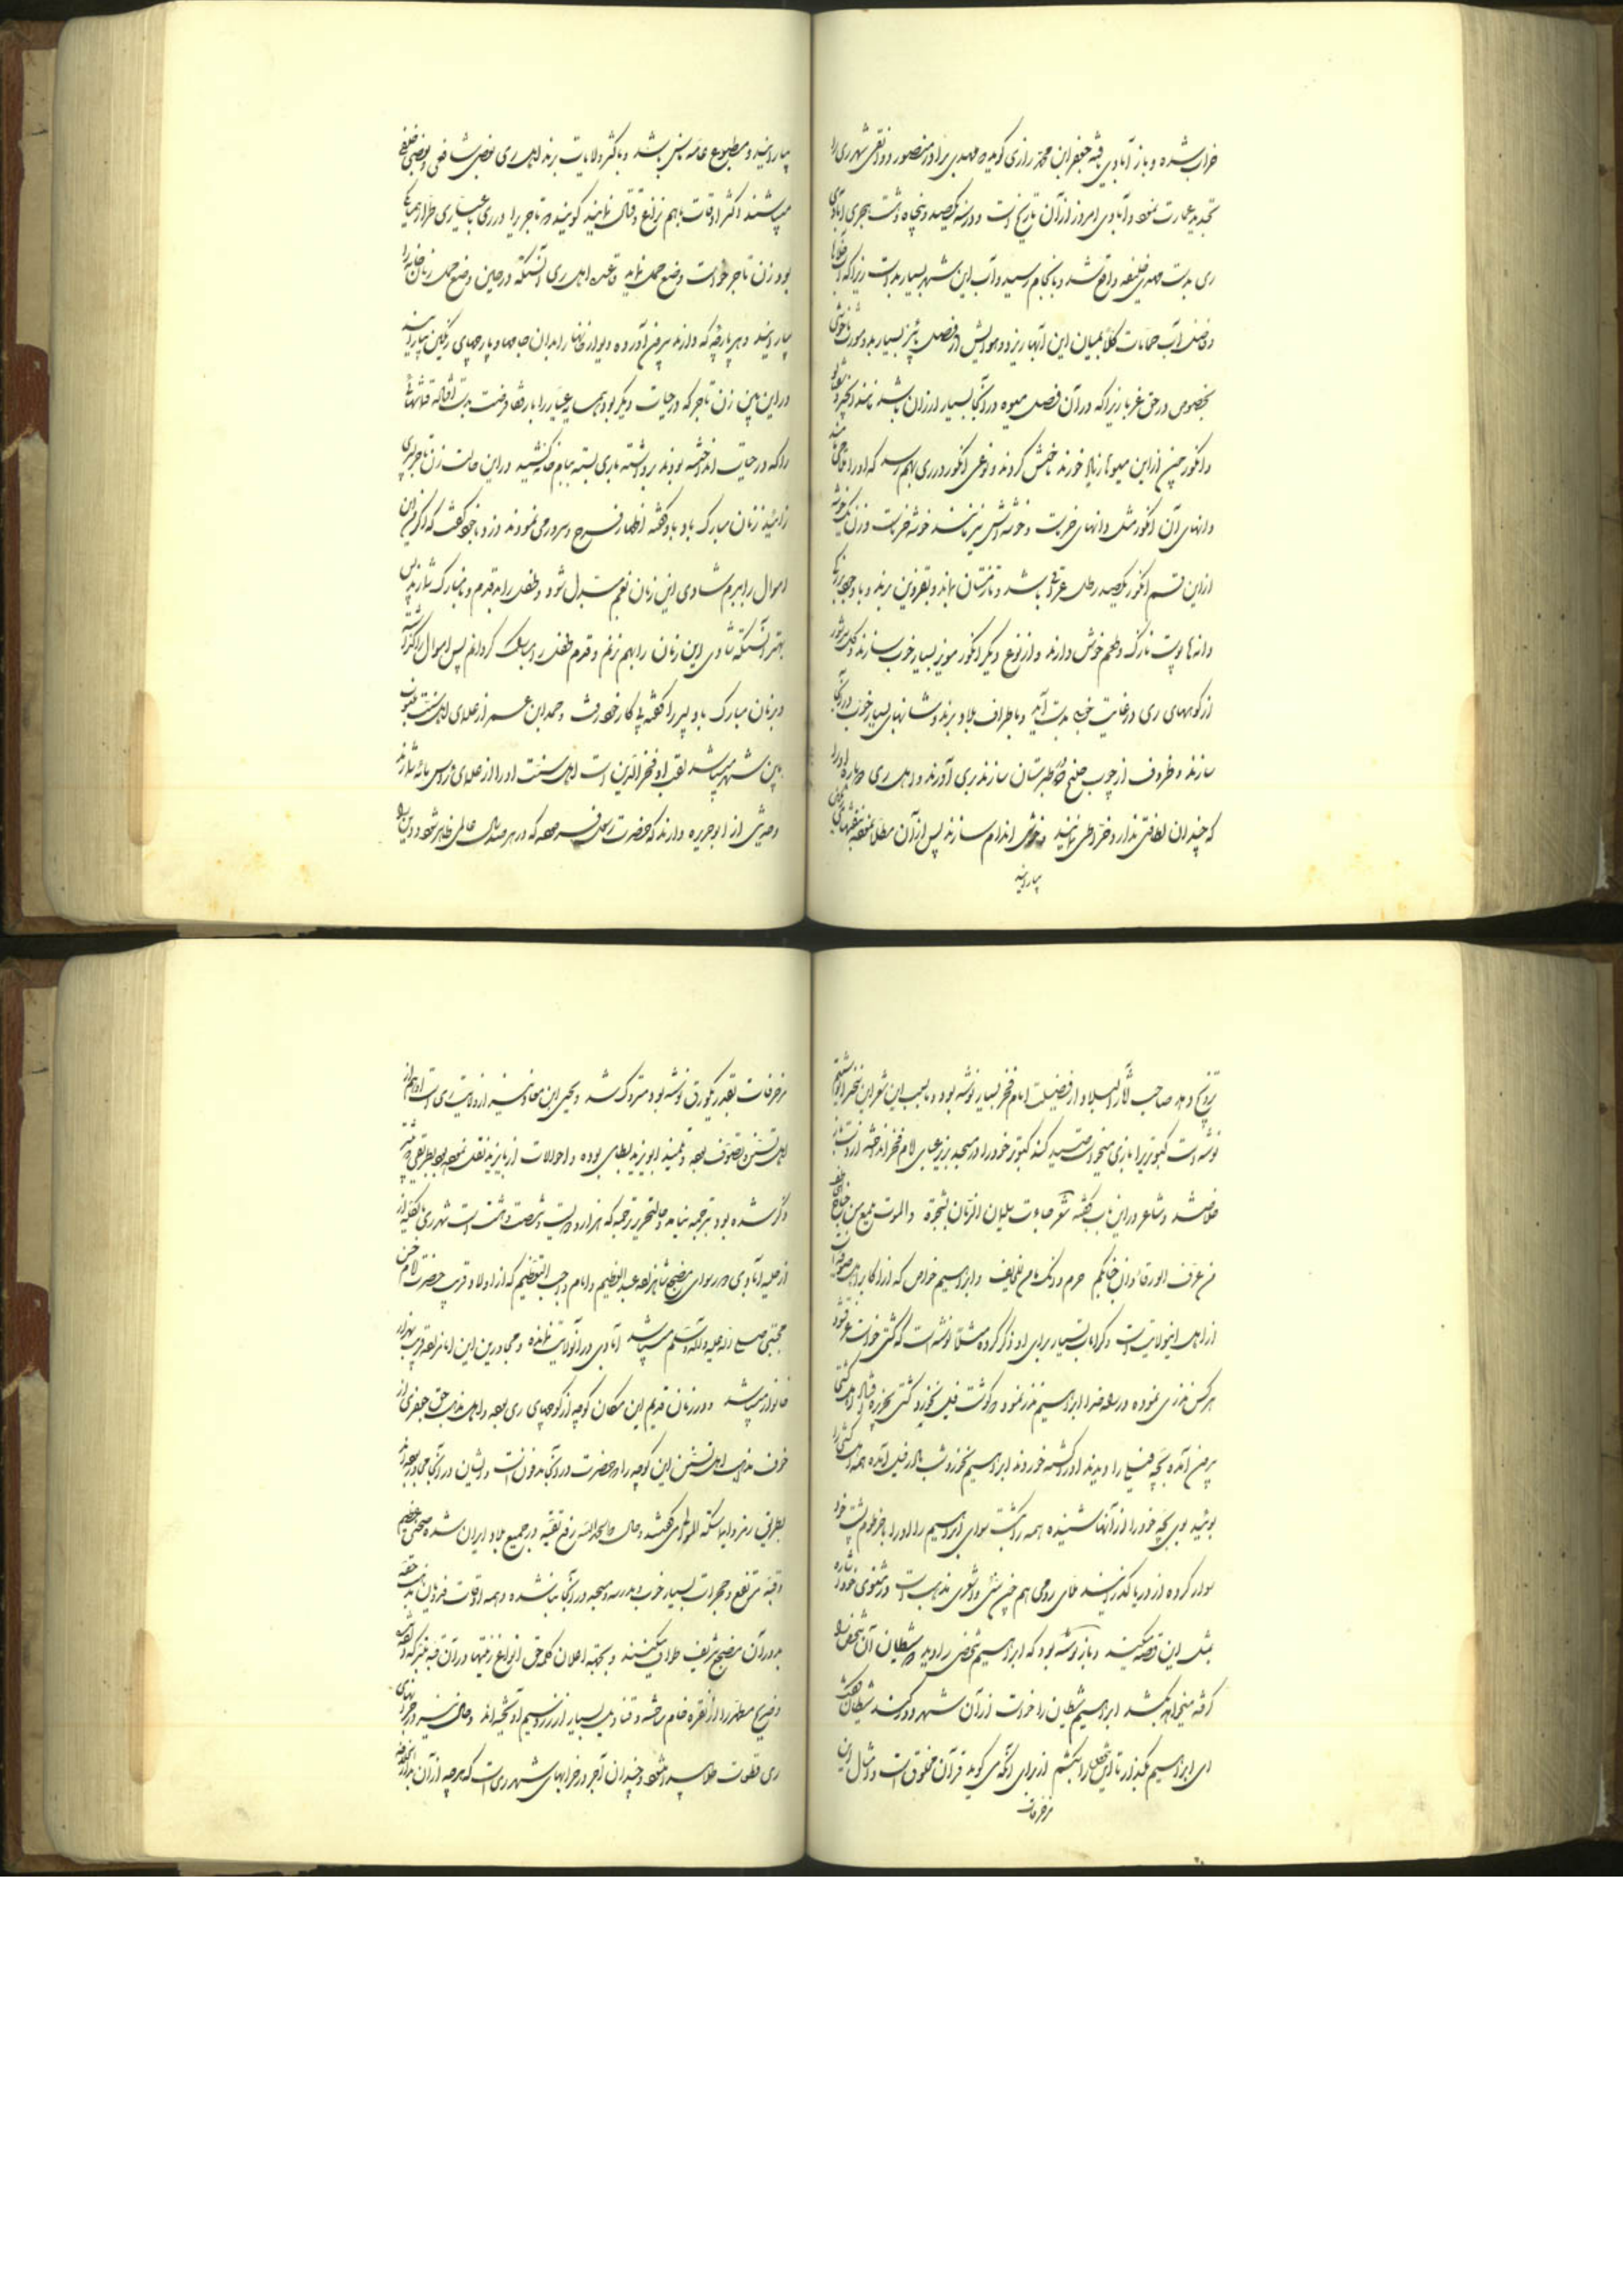 خراب شده و باز آبادی یافته جعفر ابن محمد رازی گوید که مهدی برادر منصور دوانقی شهر ری را
تجدید عمارت نموده و آبادی امروز از آن تاریخ است و در سنه یکصد و پنجاه و هشت هجری آبادی
ری بدست مهدی خلیفه واقع شد و بانجام رسید و آب این شهر بسیار بد است زیرا که
و فضل آب حمامات کلا بمیان این آبها ریزد و هوایش در فصل پائیز بسیار بد و
بخصوص در حق غربا زیرا که در آن فصل میوه در آنجا بسیار ارزان باشد مانند انجیر و
و انگور چون از این میوها زیاد خورند ناخوش گردند و نوعی انگور در ری بهم رسد که او را
دانهای آن انگور مثل دانهای خرماست و خوشه‌اش نیز مانند خوشه خرماست و وزن یک خوشه
از این قسم انگور یکصد رطل عراقی باشد و تا زمستان بماند و بقزوین برند و با وجود
دانه‌ها پوست نازک و طعم خوش دارند و از نوع دیگر انگور مویز بسیار خوب سازند و گل سرشور
از کوههای ری در غایت خوبی بدست آید و باطراف بلاد برند و شانهای بسیار خوب در آنجا
سازند و ظروف از چوب خلنج که در طبرستان سازند بری آورند و اهل ری دوباره او را
که چندان لطافتی ندارد خراطی نمایند و خوش اندام سازند پس از آن مطلا نموده
بیارایند
بیارایند و مطبوع عامه ناس باشد و باکثر ولایات برند اهل ری بعضی شافعی و بعضی حنفی
میباشند اکثر اوقات باهم نزاع و قتال نمایند گویند که تاجری را در ری
بود زن تاجر خواست وضع حمل نماید و قاعده اهل ری آنستکه در حین وضع حمل زنان خانه را
بیارایند و هر پارچه که دارند بیرون آورده دیوار خانها را بدان جامها و پارچهای رنگین بیارایند
در این بین زن تاجر که در حیات دیگر بود
را که در حیات انداخته بودند برداشته باری بسته ببام خانه کشید در این حالت زن تاجر پسری
زائید زنان مبارک باد گفته اظهار فرح و سرور می نمودند دزد با خود گفت که اگر من این
اموال را ببرم شادی این زنان بغم مبدل شود و طفل را بد قدم و نامبارک شمارند پس
بهتر آنستکه شادی این زنان را بهم نزنم و قدم طفل را مبارک گردانم پس اموال را گذاشته
و بزنان مبارک باد پسر را گفته پی کار خود رفت و حمدان عمر از علمای اهل سنت منسوب
باین شهر میباشد لقب او فخر الدین است اهل سنت او را از علمای رؤس مائه شمارند
و حدیثی از ابو هریره دارند که حضرت رسول فرموده که در هر صد سال عالمی ظاهر شود و دین را
ترویج دهد صاحب آثار البلاد از فضیلت امام فخر بسیار نوشته بود و بسبب این شعر این فخر را
نوشته است کبوتریرا بازی میخواست صید کند کبوتر خود را در مسجد بزیر عبای امام فخر انداخته از دست باز
خلاص شد و شاعر در این باب گفته شعر جاءت سلیمان الزمان بشجوه والموت یلمع من جناحی خاطف
من عرف الورقاء ان جنابکم حرم و انک مأمن للخائف و ابراهیم خواص که از اکابر اهل تصوف است
از اهل اینولایت است و کرامات بسیار برای او ذکر کرده مثلا نوشته است که کشتی خواست غرق شود
هر کس نذری نموده در راه خدا ابراهیم نذر نمود که گوشت فیل نخورد کشتی بجزیره افتاد اهل کشتی
بیرون آمده بچه فیلی را دیدند او را کشته خوردند ابراهیم نخورد شب مادر فیل آمده همه اهل کشتی را
بوئید بوی بچه خود را از آنها شنیده همه را کشت سوای ابراهیم را او را با خرطوم بپشت خود
سوار کرده از دریا گذرانید ملای رومی هم چون سنی و اشعری مذهب است در مثنوی خود اشاره
بمثل این قصه میکند و باز نوشته بود که ابراهیم شخصی را دید که شیطان آن شخص را
گرفته میخواهد بکشد ابراهیم شیطان را خواست از آن شهر دور کند شیطان گفت
ای ابراهیم بگذار تا این شخص را بکشم از برای آنکه می گوید قرآن مخلوق است و امثال این
مزخرفات
مزخرفات بقدر یکورق نوشته بود متروک شد و یحیی ابن معاذ نیز از ولایت ری است او هم از
اهل تسنن و تصوف بوده و تلمیذ ابو یزید بسطامی بوده و احوالات از بایزید نقل نموده
ذکر شده بود ترجمه ننمایند و حال تحریر ترجمه که هزار و دویست و شصت و هشت است شهر ری بالکلیه از
از حلیه آبادی عاری سوای مضجع شاهزاده عبد العظیم و امام واجب التعظیم که از اولاد قریب حضرت امام حسن
مجتبی صلی الله علیه و آله و سلم میباشد آبادی در آنولایت نمانده و مجاورین این امامزاده قریب بهزار
خانوار میباشد و در زمان قدیم این مکان کوچه از کوچهای ری بوده و اهل مذهب حق جعفری از
خوف مذهب اهل تسنن این کوچه را که حضرت در آنجا مدفون است و ایشان در آنجا مجاور بوده‌اند
بطریق رمز و ایما سکة الموالی می گفتند و حال که بحمد الله رفع تقیه در جمیع بلاد ایران شده
و قبه مرتفع و حجرات بسیار خوب و مدرسه و مسجد در آنجا بنا شده و همه اوقات
بدور آن مضجع شریف طواف میکنند و بجهة اعلان کلمه حق انواع زینتها در آن قبه متبرکه
و ضریح مطهر را از نقره خام ساخته و قنادیل بسیار از زر و سیم آویخته‌اند و حال نیز در خرابهای
ری قطعات طلا پیدا شود و چندان آجر در خرابهای شهر ری است که هر چه از آن